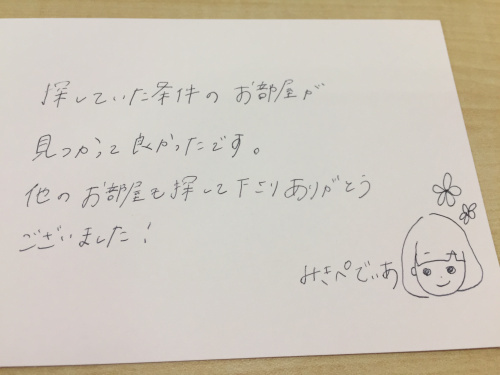 探していた条件のお部屋が
見つかって良かったです。
他のお部屋も探して下さりありがとう
ございました!
みきぺでぃあ